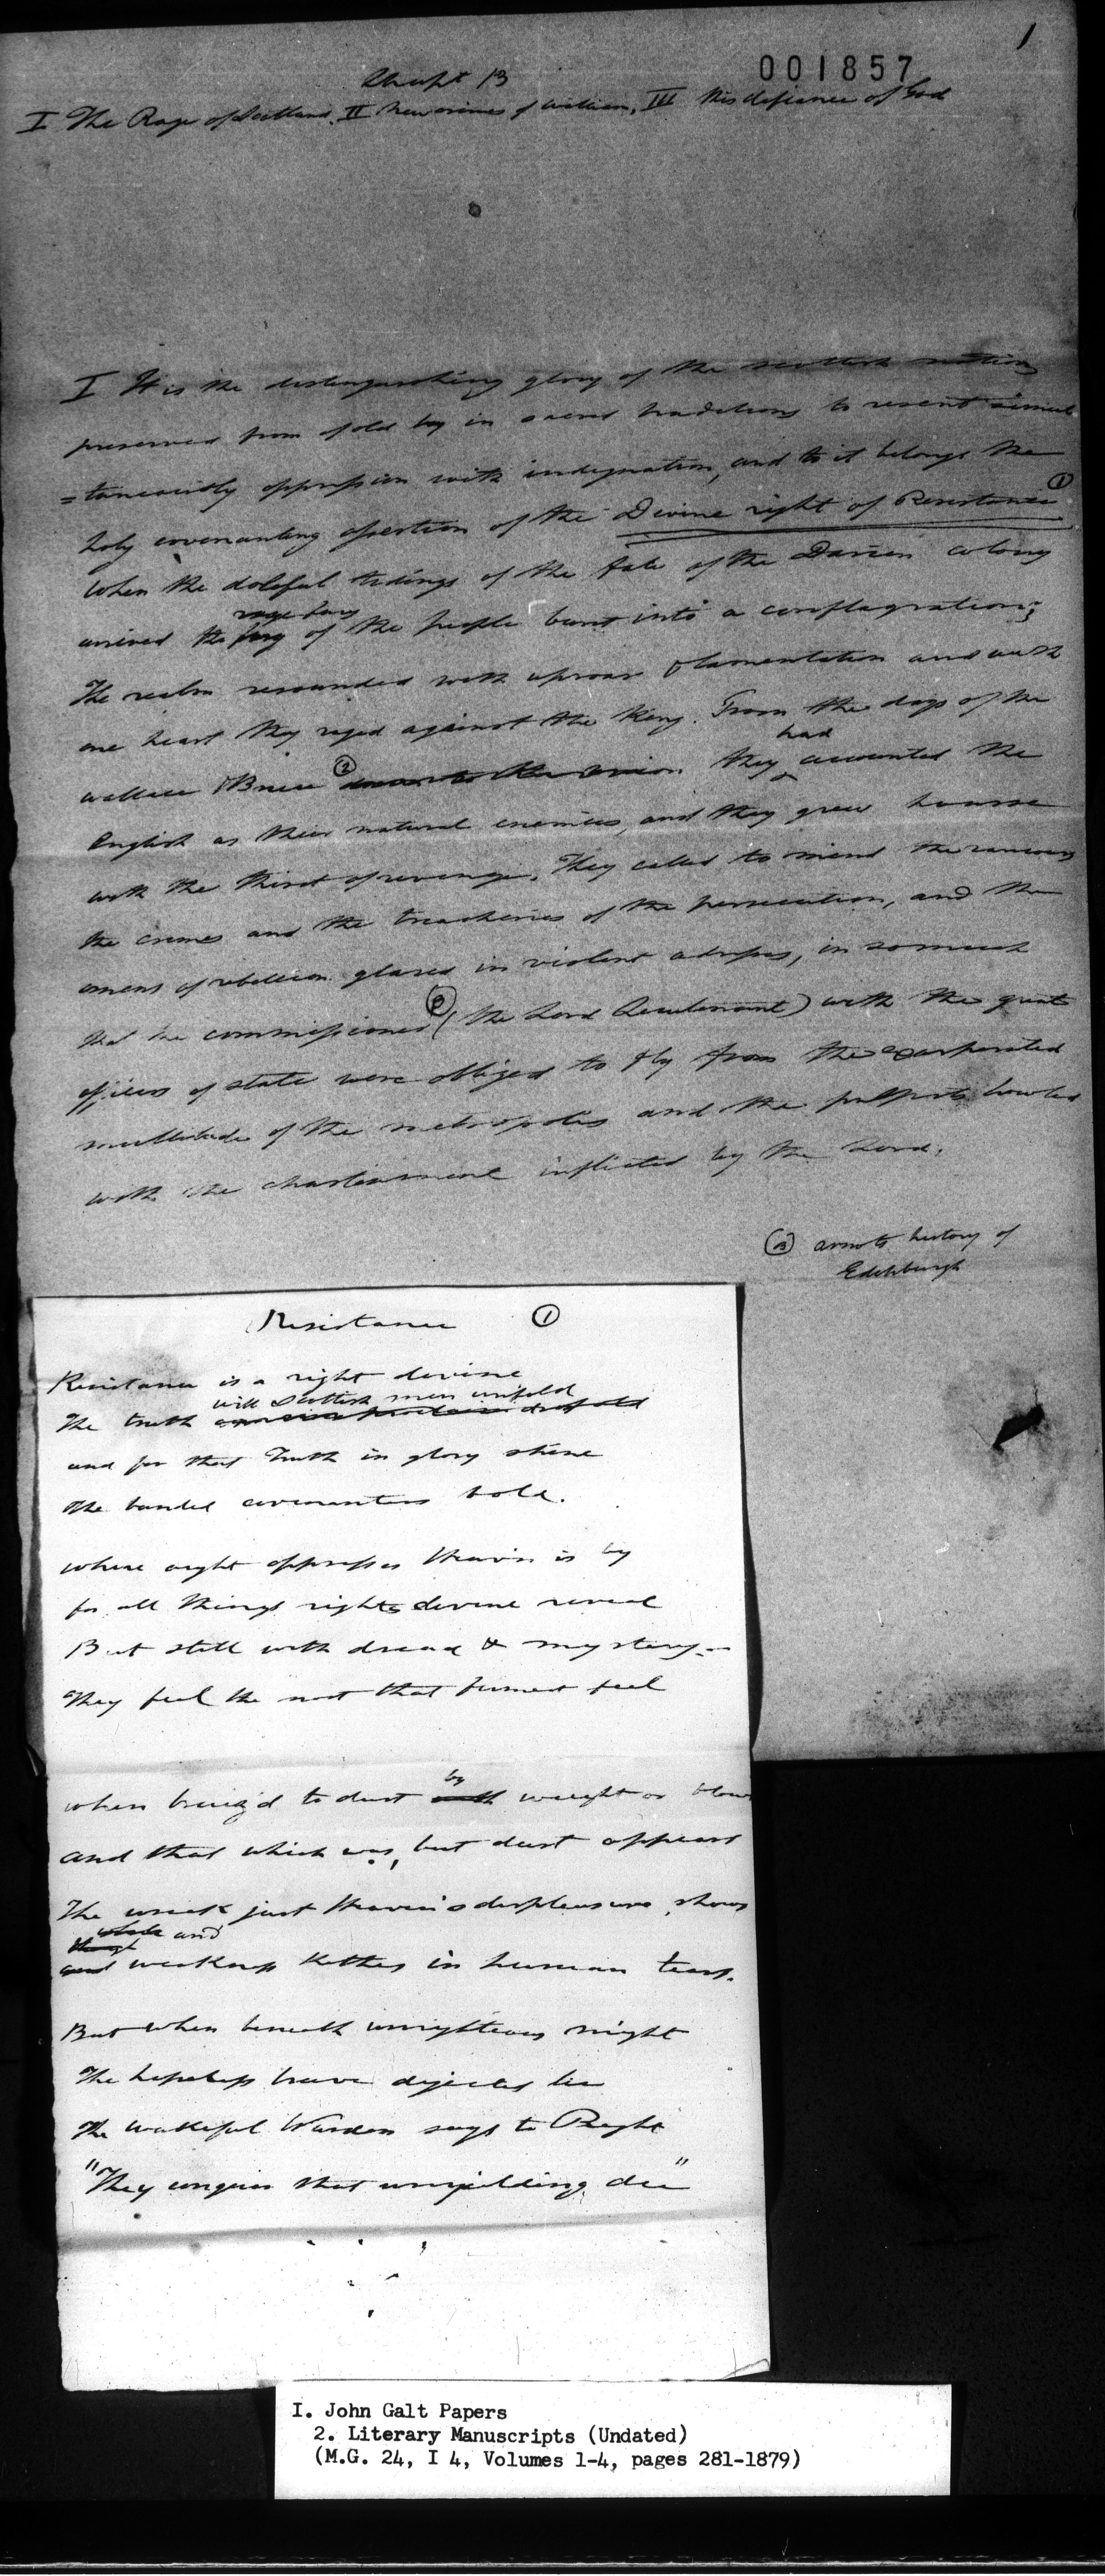 1
001857
Chapt 13
I The Rage of Scotland. II New crimes of William, III His defiance of God
I It is the distinguishing glory of the scottish nation
preserved from of old by in sacred traditions to resent simul
=taneously oppression with indignation, and to it belongs the
holy covenanting assertion of the Divine right of Resistance ①
When the doleful tidings of the fate of the Darien colony
rage
arrived the fury of the people burst into a conflagration;
The realm resounded with uproar & lamentation and with
one heart they raged against the King. From the days of the
had
Wallace & Bruce ② they accounted the
English as their natural enemies, and they grew hoarse
with the thirst of revenge. They called to mind the rancour
the crimes and the treacheries of the persecution, and the
omens of rebellion glared in violent addresses, in so much
that the commissioner (the Lord Lieutenant) with the great
officers of state were obliged to fly from the exasperated
multitude of the metropolis and the pulpits howled
with the chastisement inflicted by the Lord.
arnots history of
Edinburgh
Resistance ①
Resistance is a right devine
will Scottish men unfold
The truth
and for that Truth in glory shine
The banded covenanters bold.
where aught oppresses Heav'n is by
for all things rights devine reveal
But still with dread & mystery.
They feel the most that firmest feel
by
when bruiz'd to dust weight or blows
and that which was, but dust appears
The wreck just Heaven's displeasure shows
and
weakness Kythes in human tears.
But when beneath unrighteous might
The hopeless brave dejected lie
The wakeful Warden says to Right
"They conquer that unyielding die"
I. John Galt Papers
2. Literary Manuscripts (Undated)
(M.G. 24, I 4, Volumes 1-4, pages 281-1879)